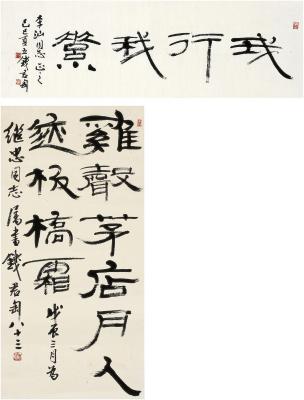 我行我
李汕同志正之
己巳夏五錢君匋
雞聲茅店月人
迹板橋霜 戊辰三月為
繼忠同志屬書錢君匋八十三